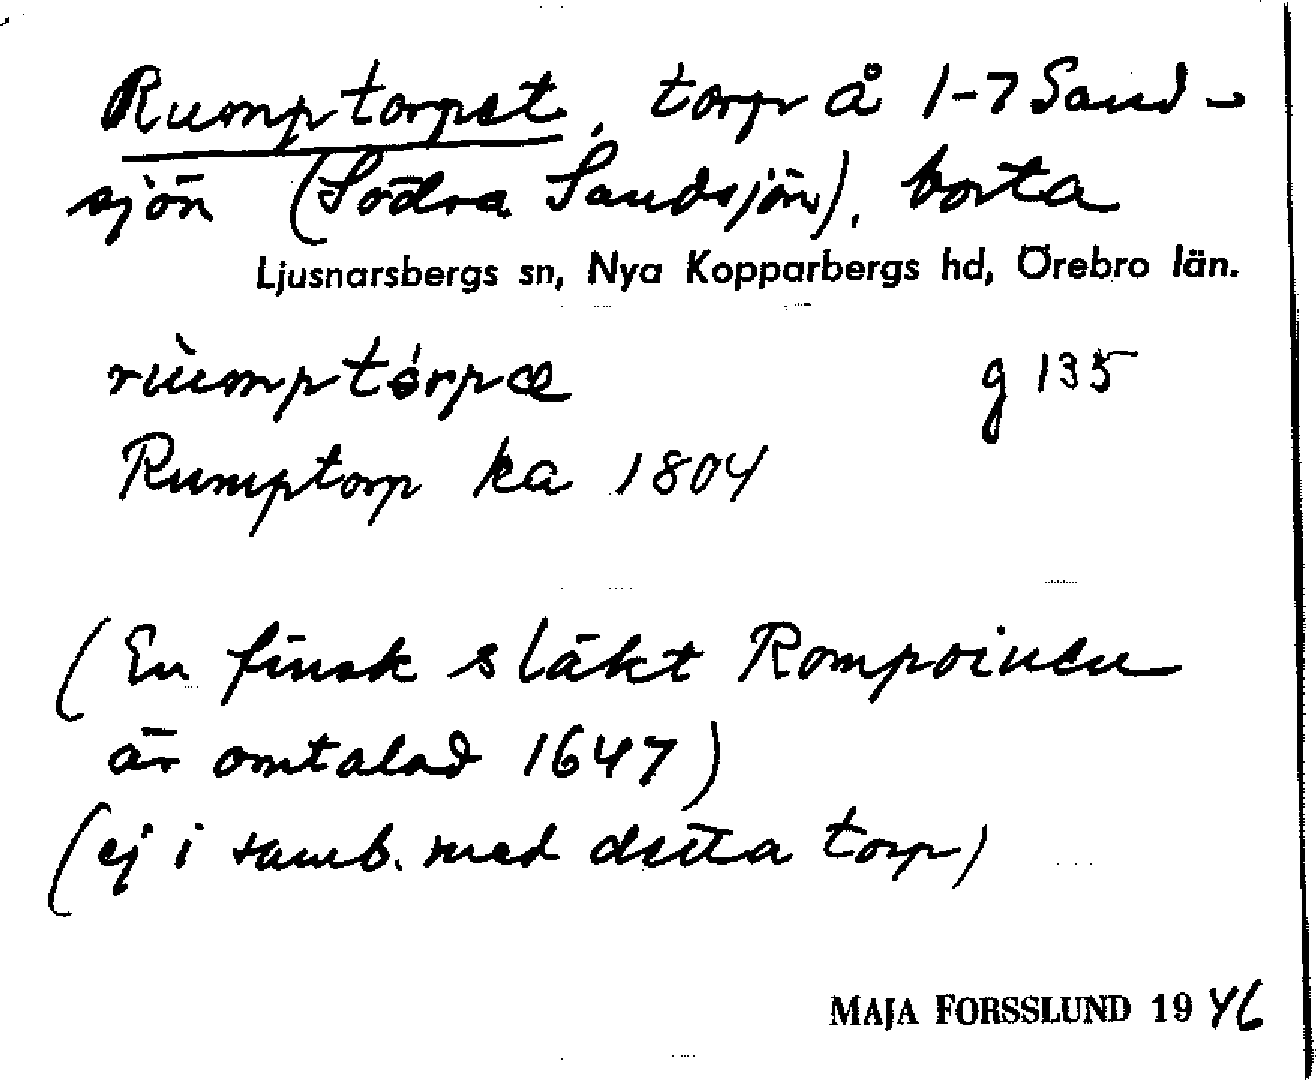 Rumptorpet, torp å 1-7 Sand-
sjön (Södra Sandsjön), borta
Ljusnarsbergs sn, Nya Kopparbergs hd, Örebro län.
rùumptórpæ g 135
Rumptorp ka 1804
(En finsk släkt Rompoinen
är omtalad 1647)
(ej i samb. med detta torp)
MAJA FORSSLUND 1946